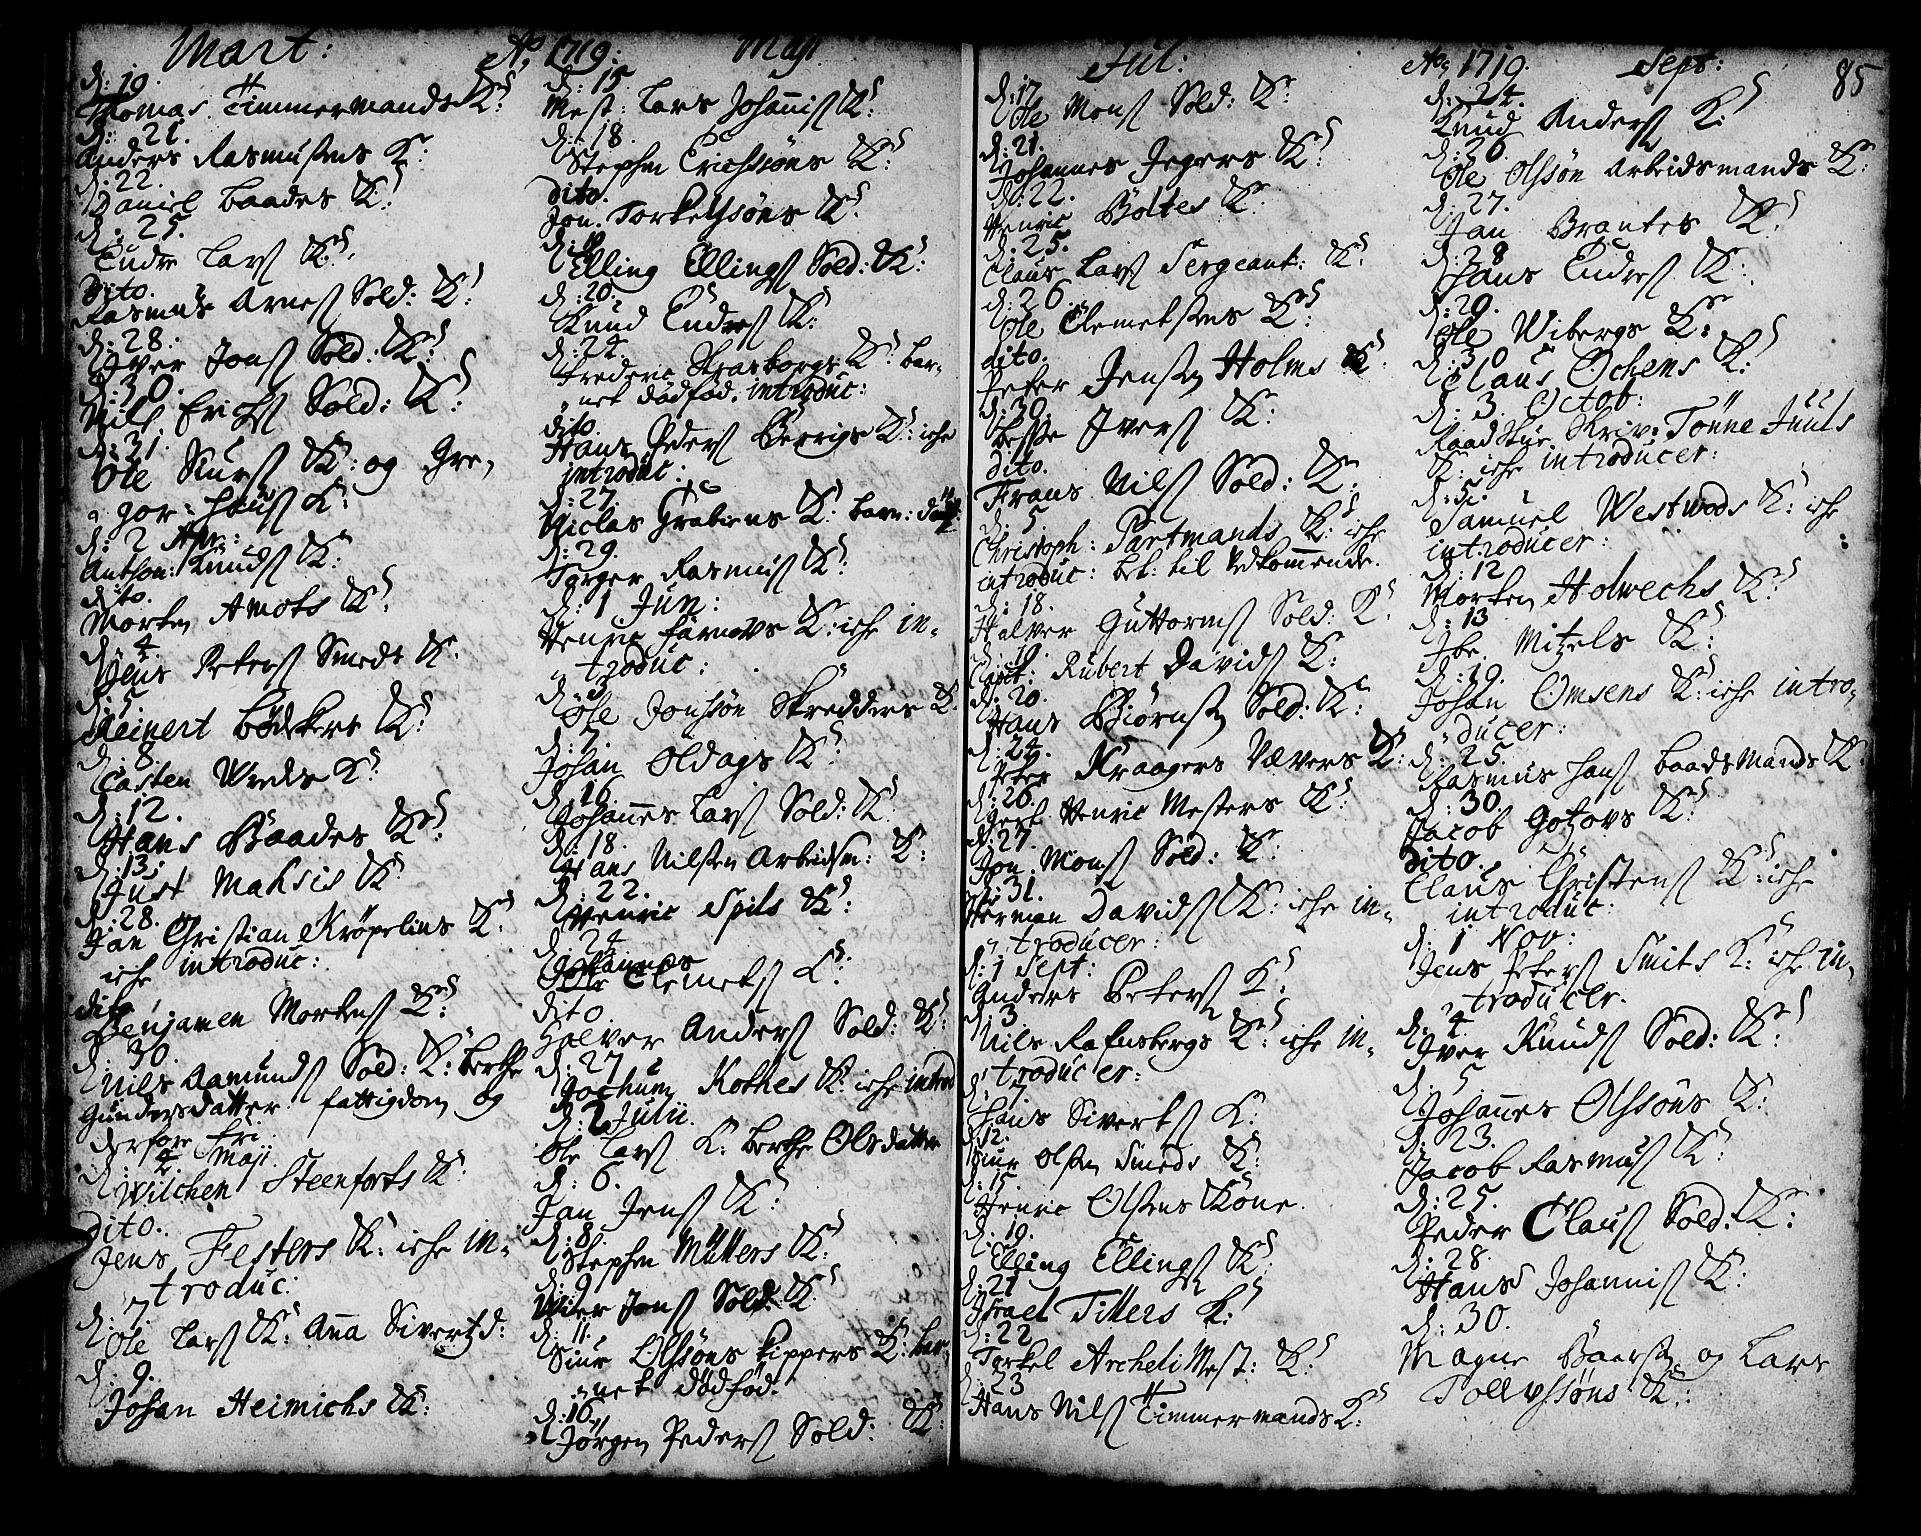 Mart: Ao 1719:
d: 19.
Thomas Timmermands K:
d: 21.
Anders Rasmusens K:
d: 22.
Daniel Baades K:
d: 25.
Endre Lars K:
Dito.
Rasmus Arnes Sold: K:
d: 28.
Iver Jons Sold: K:
d: 30.
Nils Erichs Sold: K:
d: 31.
Ole Siurs K: og Gre,
gor: Hans K:
d: 2 Apr:
Anthon: Knuds K:
dito.
Morten Amots K:
d: 4
Jens Peters Smeds K:
d: 5.
Reinert Bødkers K:
d: 8.
Casten Wreds K:
d: 12.
Hans Baades K:
d: 13.
Just Mahsis K:
d: 28.
Jan Christian Krøpelins K:
iche introduc:
dito
Benjamen Mortens K:
d: 30.
Nils Aamunds Sold: K: Berthe
Gundersdatter fattigdom og
derfore fri.
d: 4. Maji.
Wilchen Steenforts K:
Dito.
Jens Festers K: iche in-
troduc:
d: 7.
Ole Lars K: Anna Sivertzd:
d: 9.
Johan Heimichs K:
Maji
d: 15
Mest: Lars Johannis K:
d: 18.
Stephen Erichssøns K:
Dito.
Jon Torkelsøns K:
d: 19.
Elling Ellings Sold: K:
d: 20.
Knud Endres K:
d: 24.
Frederic Strasborgs K: bar-
net dødfød. introduc:
dito.
Hans Peders Berrigs K: iche
introduc:
d: 27.
Niclas Grabens K: barn: død
d: 29.
Torger Rasmus K:
d: 1 Jun:
Henric farners K: iche in-
troduc:
Ole Jonssøn Skredders K:
d: 7.
Johan Oldags K:
d: 16.
Johannes Lars Sold: K:
d: 18.
Hans Nilsen Arbeidsm: K:
d: 22.
Henric Spils K:
d: 24
Johannes
Ole Clemets K:
dito.
Halver Anders Sold: K:
d: 27
Jochum Kothes K: iche introd
d: 2 Julii.
Ole Lars K: Berthe Olsdatter
d: 6.
Jan Jens K:
d: 8.
Stephen Müllers K:
d: 9
Wier Jons Sold: K:
d: 11.
Siur Olssøns Kippers K: bar-
net dødfød.
d: 16.
Jørgen Peders Sold: K:
Jul:
d: 17.
Ole Mons Sold: K:
d: 21.
Johannes Jegers K:
d: 22.
Henric Böltes K:
d: 25.
Claus Lars Sergeant: K:
d: 26.
Ole Clemetsens K:
dito.
Peter Jensen Holms K:
d: 30.
Besse Ivers K:
Dito.
Frans Nils Sold: K:
d: 5.
Christoph: Partmands K: iche
introduc: bet: til Vedkommende.
d: 18.
Halver Guttorms Sold: K:
Capt: Rubert Davids K:
d: 20.
Hans Biørnsen Sold: K:
d: 24.
Peter Kraagers Vævers K:
d: 26.
Gert Henric Mesters K:
d: 27.
Jon Mons Sold: K:
d: 31.
Herman Davids K: iche in-
troducer:
d: 1 Sept:
Anders Peters K:
d: 3
Nils Rafnsbergs K: iche in-
troducer:
d: 7
Hans Siverts K:
d: 12.
Siur Olsen Smeds K:
d: 15
Henric Olsens Kone.
d: 19.
Elling Ellings K:
d: 21
Israel Tillers K:
d: 22
Torkel Archeli Mest: K:
d: 23
Hans Nils Timmermands K:
Ao 1719. Sept: 85
d: 24.
Knud Anders K:
d: 26.
Ole Olssøn Arbeidsmands K:
d: 27.
Jan Brantes K:
d: 28
Hans Endres K:
d: 29.
Ole Wibergs K:
d: 30
Claus Ochens K:
d: 3. Octob:
Raadstue Skriv: Tønne Juuls
K: iche introducer:
d: 5.
Samuel Westwods K: iche
introducer:
d: 12
Morten Holwechs K:
d: 13
Ibe Mitzels K:
d: 19.
Johan Omsens K: iche intro-
ducer:
d: 25.
Rasmus Hans baadsmands K:
d: 30.
Jacob Gotzovs K:
Dito.
Claus Christens K: iche
introduc:
d: 1 Nov:
Jens Peters Smits K: iche in-
troducer.
d: 4.
Iver Knuds Sold: K:
d: 5
Johannes Olssøns K:
d: 23.
Jacob Rasmus K:
d: 25.
Peder Claus Sold: K:
d: 28.
Hans Johannis K:
d: 30.
Magne Baers og Lars
Tollefssøns K: